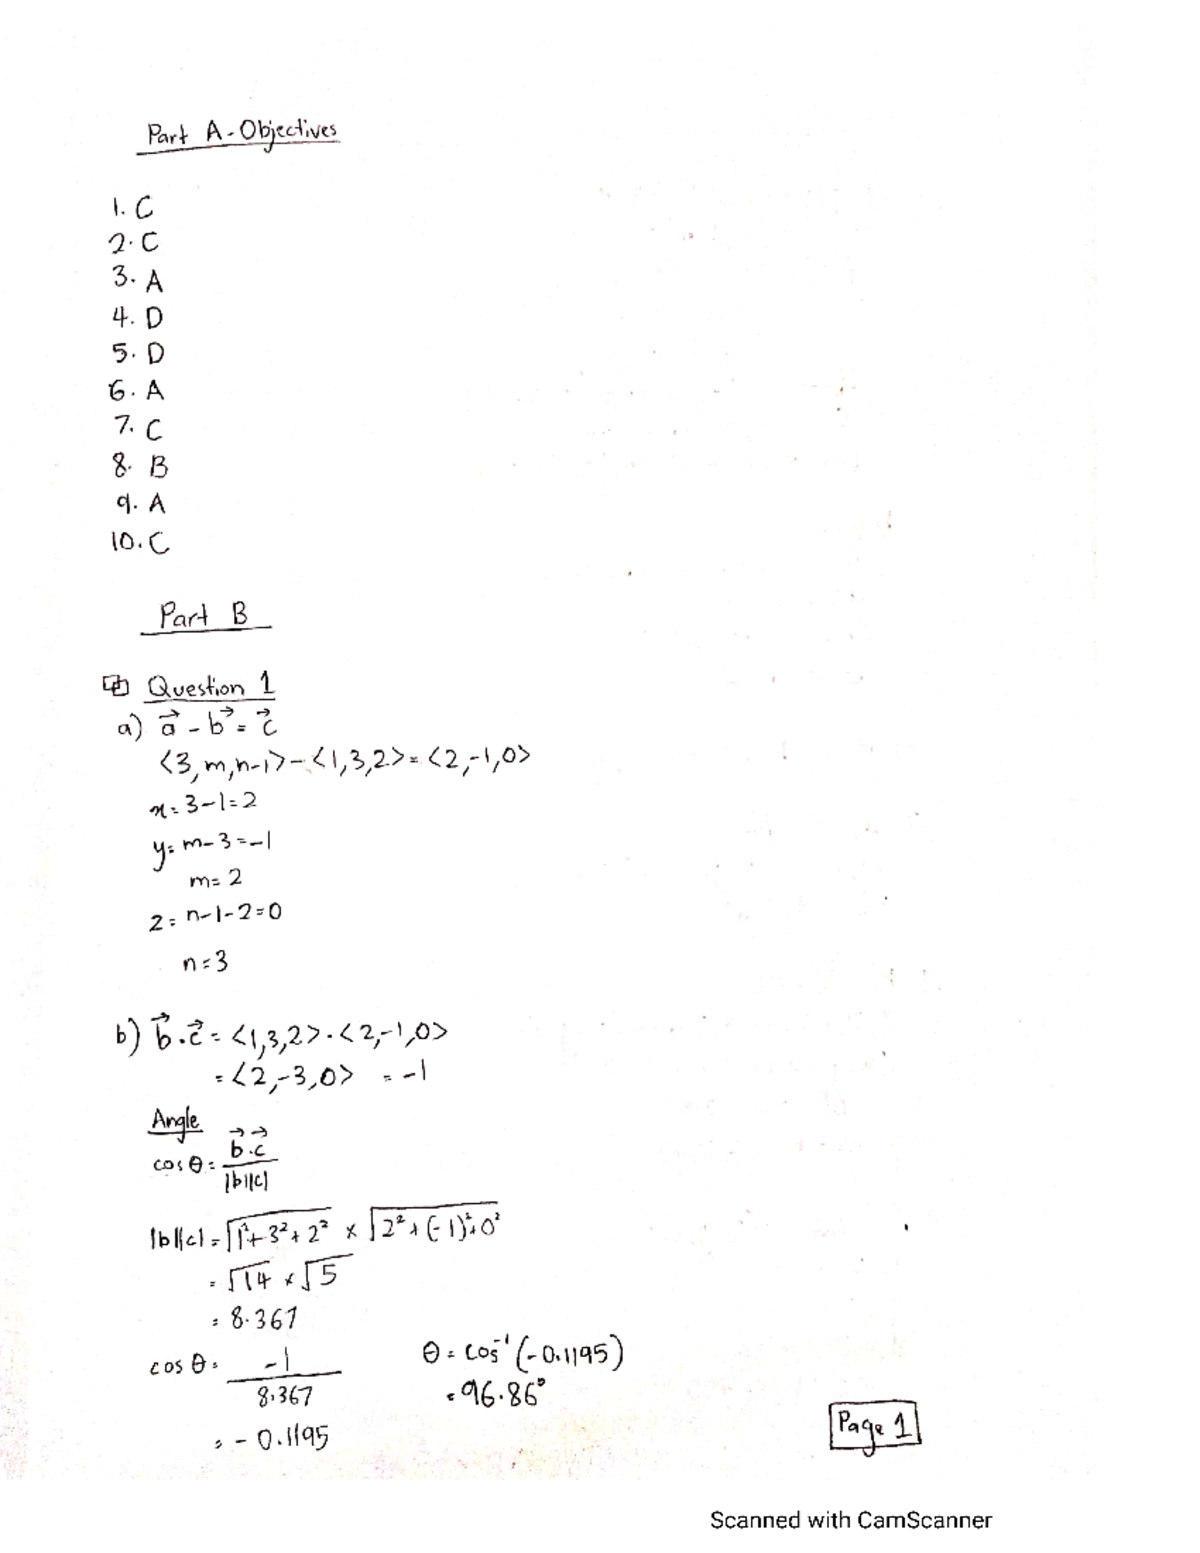 Part A - Objectives
1. C
2. C
3. A
4. D
5. D
6. A
7. C
8. B
9. A
10. C
Part B
Question 1
a) a⃗ - b⃗ = c⃗
<3, m, n-1> - <1,3,2> = <2,-1,0>
x = 3-1=2
y = m-3 = -1
m = 2
z = n-1-2=0
n = 3
b) b⃗ . c⃗ = <1,3,2> . <2,-1,0>
= <2,-3,0> = -1
Angle
cos θ = b⃗.c⃗ / |b||c|
|b||c| = √1²+3²+2² × √2²+(-1)²+0²
= √14 × √5
= 8.367
cos θ = -1 / 8.367
= -0.1195
θ = cos⁻¹ (-0.1195)
= 96.86°
Page 1
Scanned with CamScanner